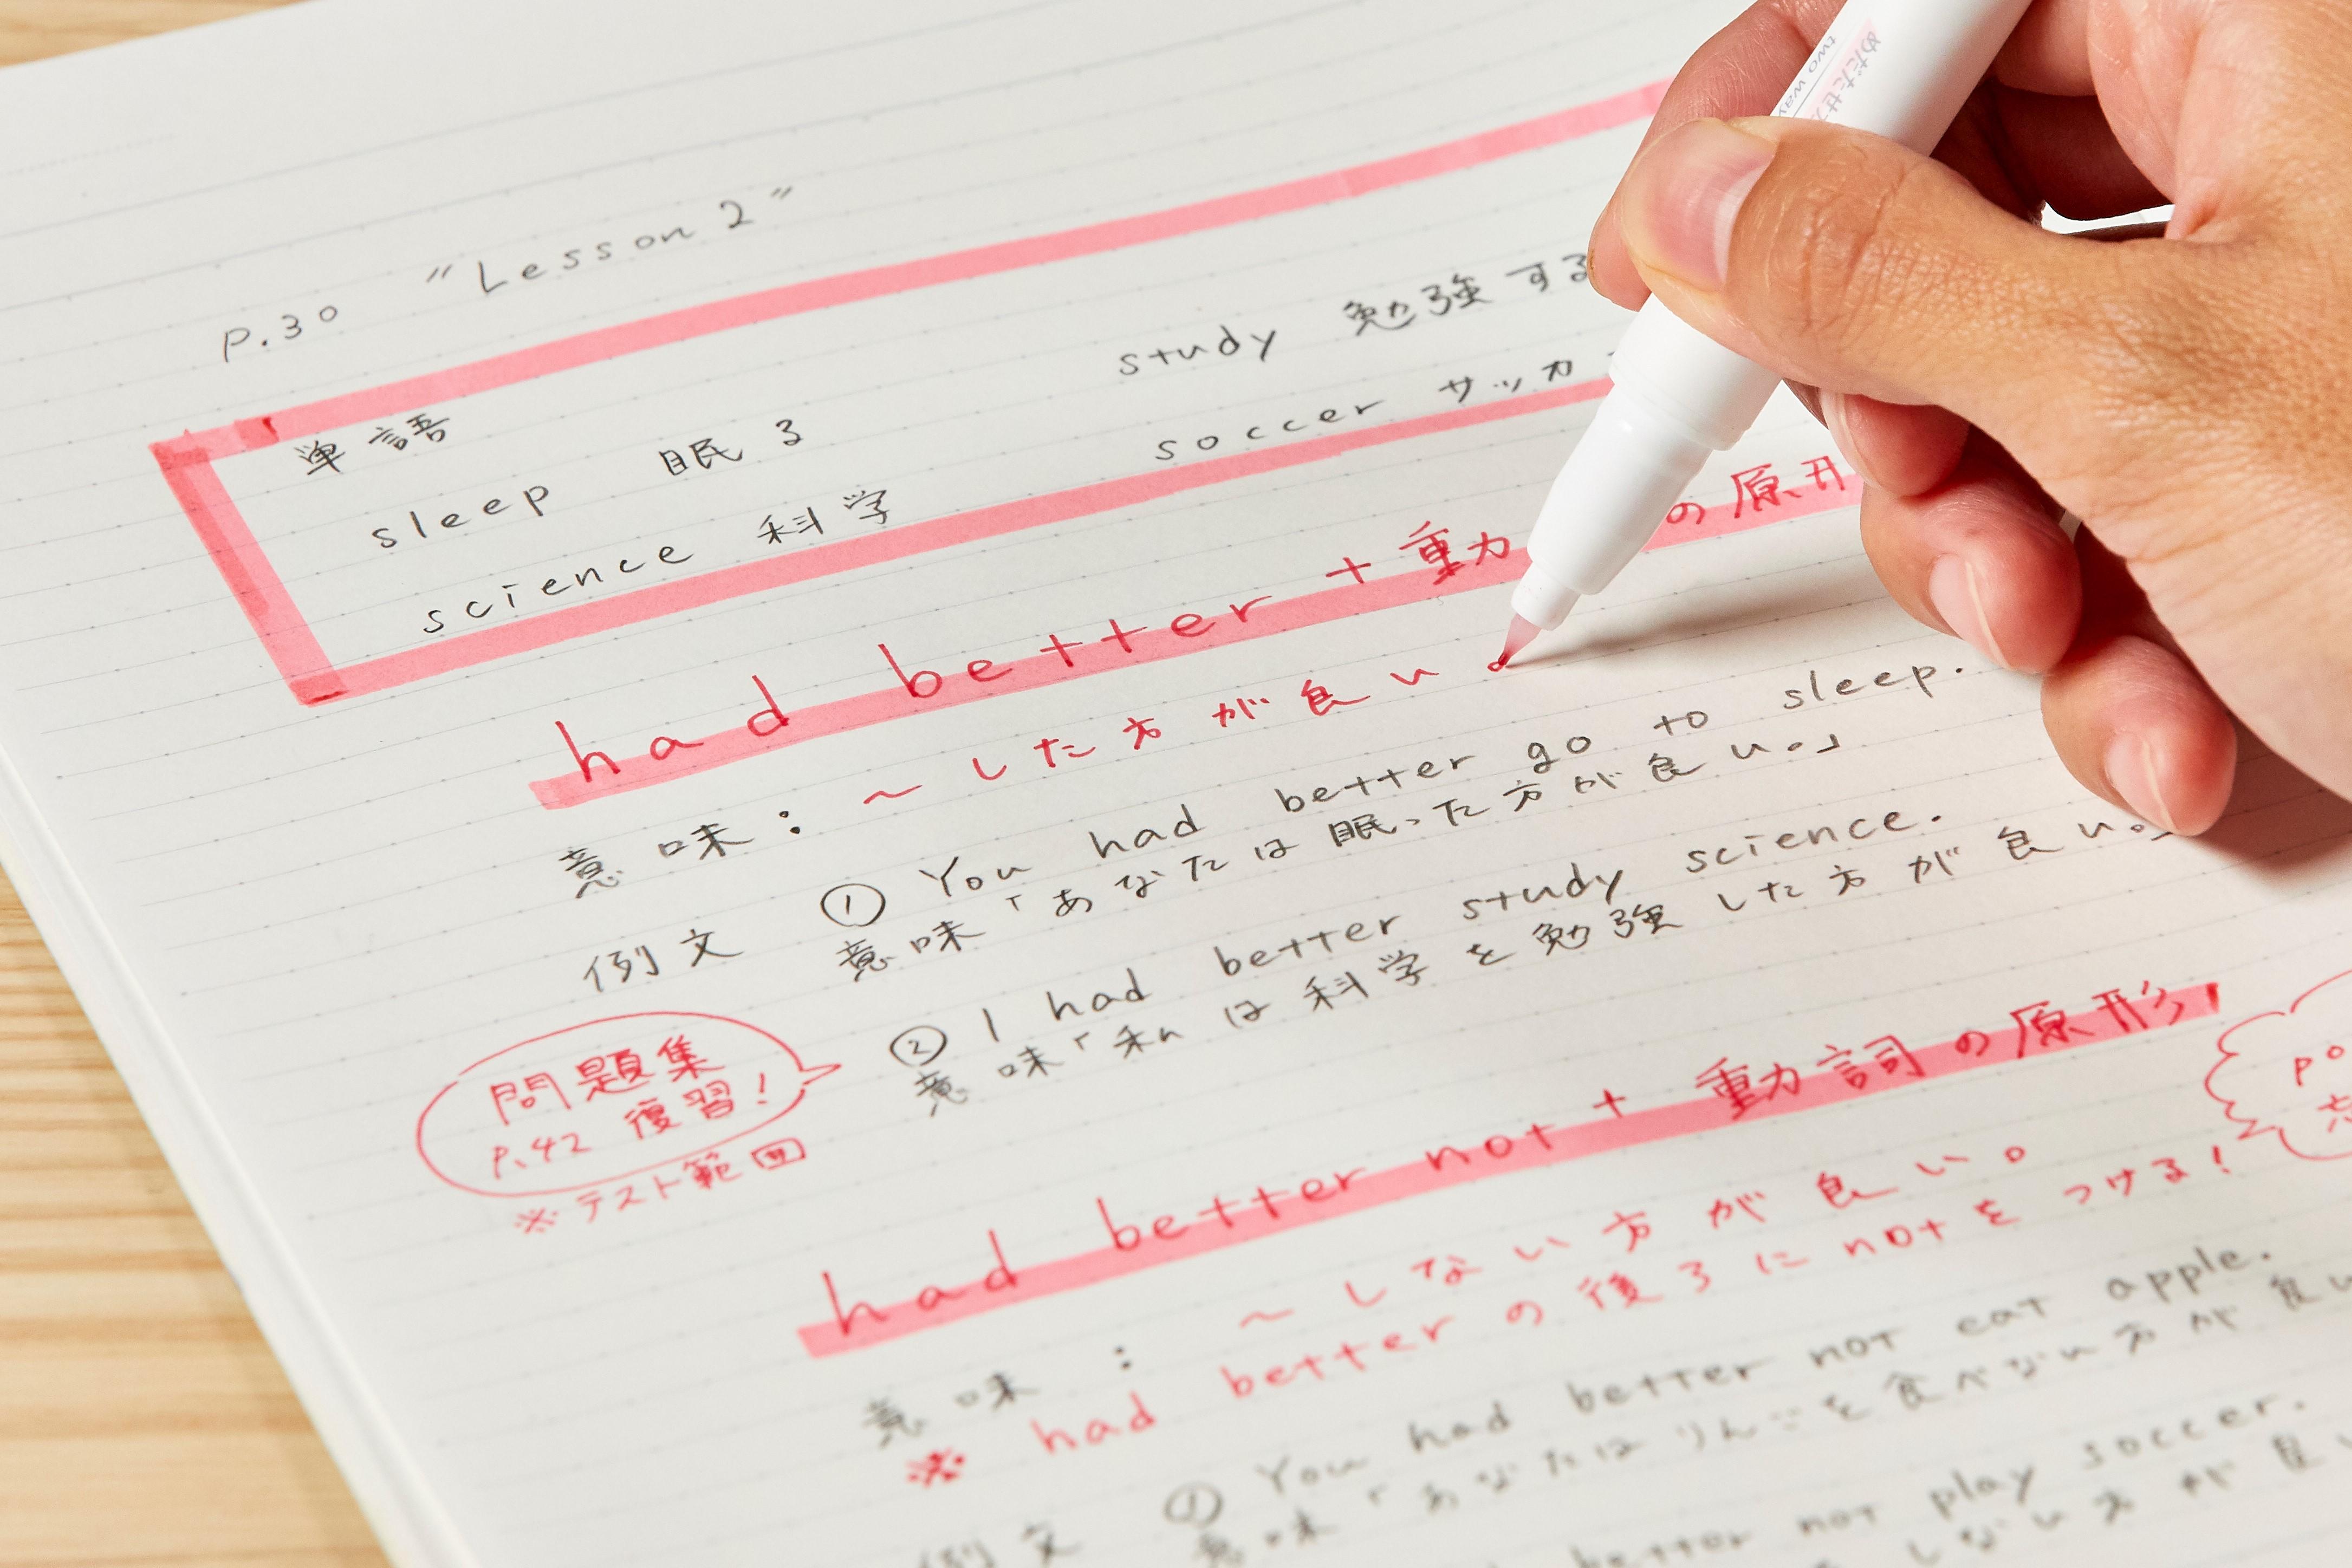 P.30 "Lesson 2"
単語
sleep 眠る study 勉強する
science 科学 soccer サッカ
had better + 動 の原形
意味: ～した方が良い。
例文 ① You had better go to sleep.
意味「あなたは眠った方が良い。」
② I had better study science.
意味「私は科学を勉強した方が良い。」
問題集
P.42 復習!
※テスト範囲
had better not + 動詞の原形
意味: ～しない方が良い。
※ had better の後ろに not をつける!
po
例文 ① You had better not eat apple.
意味「あなたはりんごを食べない方が良い
better not play soccer.
しない方が良い
two way
めだたせ